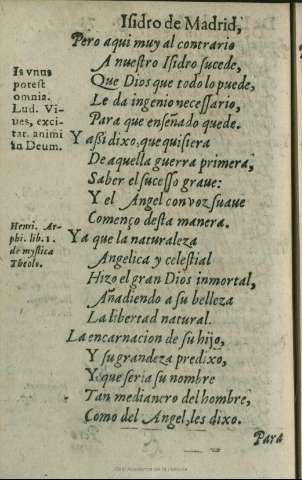 Isidro de Madrid,
Pero aqui muy al contrario
A nuestro Isidro sucede,
Que Dios que todo lo puede,
Le da ingenio necessario,
Para que enseñado quede.
Y assi dixo, que quisiera
De aquella guerra primera,
Saber el sucesso graue:
Y el Angel con voz suaue
Començo desta manera.
Ya que la naturaleza
Angelica y celestial
Hizo el gran Dios inmortal,
Añadiendo a su belleza
La libertad natural.
La encarnacion de su hijo,
Y su grandeza predixo,
Y que seria su nombre
Tan medianero del hombre,
Como del Angel, les dixo.
Para
Is vnus
potest
omnia.
Lud. Vi-
ues, exci-
tat. animi
in Deum.
Henri. Ar-
phi. lib. 1.
de mystica
Theolo.
Real Academia de la Historia